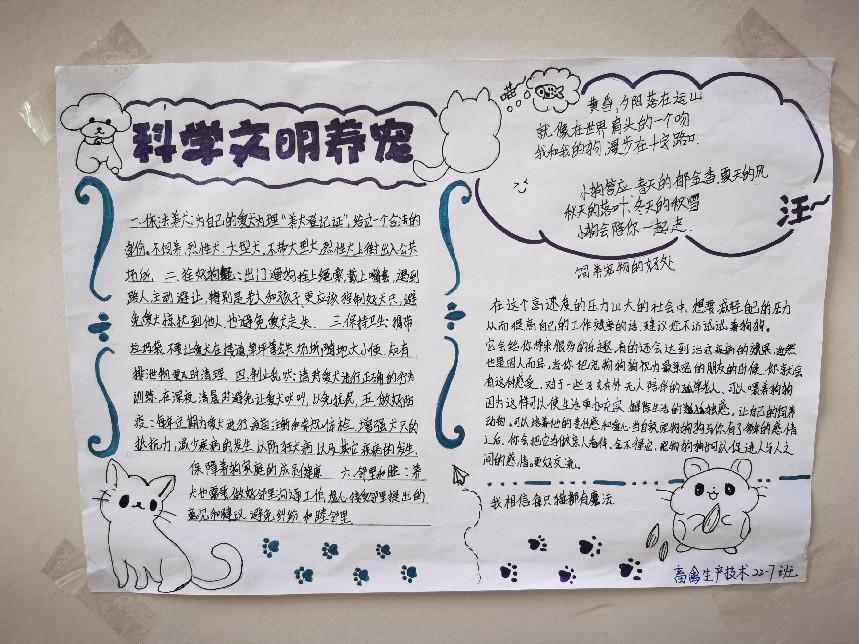 科学文明养宠
一、依法养犬:为自己的爱犬办理"养犬登记证",给它一个合法的
身份。不饲养烈性犬、大型犬,不带大型犬、烈性犬上街出入公共
场所。二、拴好狗:出门遛狗拴上绳索,戴上嘴套,遇到
路人主动避让,特别是老人和孩子更应该控制好犬只,避
免爱犬惊扰到他人,也避免爱犬走失。三、保持卫生:携带
垃圾袋,不要让爱犬在楼道、草坪等公共场所随地大小便,如有
排泄物要及时清理。四、制止乱吠:请对爱犬进行正确的行为
训练,在深夜、清晨避免让爱犬吠叫,以免扰民。五、做好防
疫:每年定期为爱犬进行疫苗注射和常规体检,增强犬只的
抵抗力,减少疾病的发生,以防狂犬病以及其它疾病的发生,
保障养狗家庭的成员健康。六、邻里和睦:养
犬也需要做好邻里沟通工作,虚心接受邻里提出的
意见和建议,避免纠纷,和睦邻里。
喵
黄昏,夕阳落在远山
就像在世界肩头的一个吻
我和我的狗,漫步在十字路口
小狗答应,春天的郁金香,夏天的风
秋天的落叶,冬天的秋雪
小狗会陪你一起走
汪~
饲养宠物的好处
在这个高速度的压力山大的社会中,想要减轻自己的压力
从而提高自己的工作效率的话,建议您不访试试养狗狗。
它会给你带来很多的乐趣,有的还会达到治疗疾病的效果,当然
也是因人而异,当你把宠物狗狗视为最亲密的朋友的时候,你就会
有这种感受。对于一些子女在外无人陪伴的孤单老人,可以喂养狗狗
因为这样可以使生活更加充实,解除生活的孤独感。让自己的饲养
动物,可以培养他的责任感和爱心,当宠物狗狗与你有了的感情
之后,你会把它当做亲人看待。全不得它,宠物狗狗也可以促进人与人之
间的感情,更好交流。
我相信每只猫都有魔法
畜禽生产技术22-7班